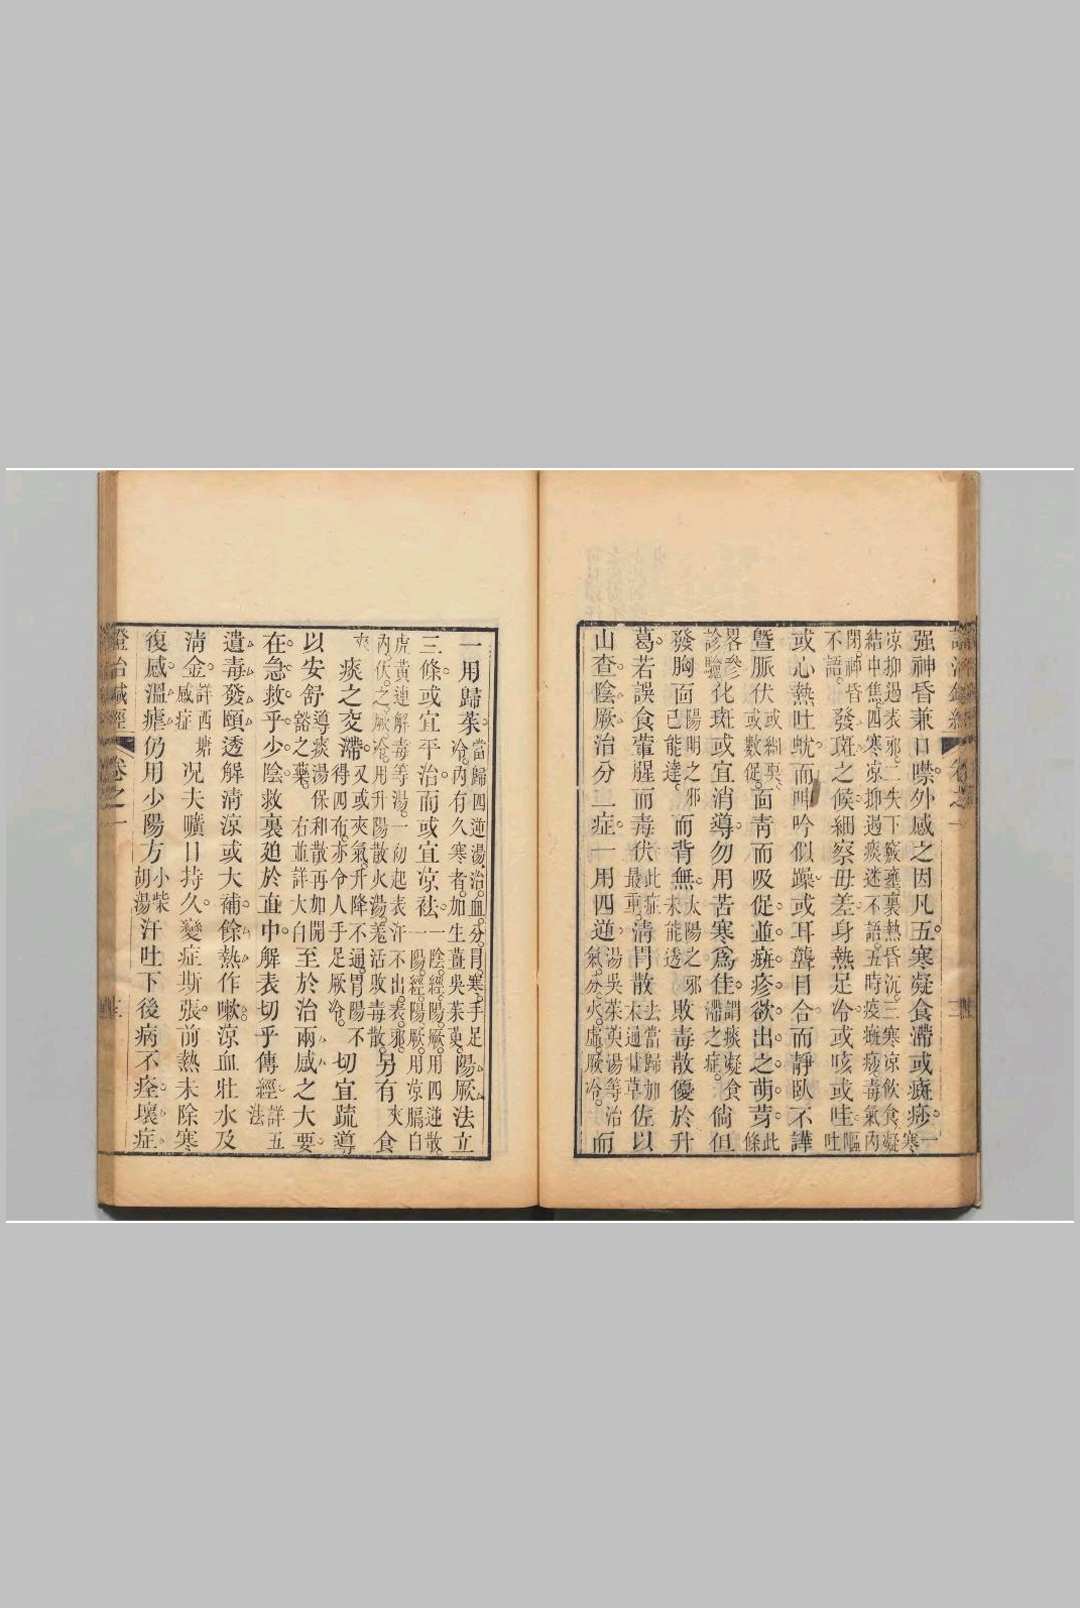 强神昏兼口噤外感之因凡五寒凝食滯或痰痧一寒
凉抑遏表邪二失下竅壅裏熱昏沉三寒凉飲食凝
結中焦四寒凉抑遏痰迷不語五時疫斑痧毒氣內
閉神昏
不語發斑之候細察毋差身熱足冷或咳或哇嘔
吐
或心熱吐蚘而呻吟似躁或耳聾目合而靜臥不譁
暨脈伏或細耎
或數促面青而吸促並痧疹欲出之萌芽此
條
畧參
診驗化斑或宜消導勿用苦寒爲佳謂痰凝食
滯之症倘但
發胸面陽明之邪
已能達而背無太陽之邪
未能透敗毒散優於升
葛若誤食葷腥而毒伏此症
最重清胃散去當歸加
木通甘草佐以
山查陰厥治分二症一用四逆湯吳茱萸湯等治
氣分火虛厥冷而
一用歸茱當歸四逆湯治血分胃寒手足
冷內有久寒者加生薑吳茱萸陽厥法立
三條或宜平治而或宜凉祛一陰經陽厥用四逆散
一陽經陽厥用凉膈白
虎黃連解毒等湯一初起表汗不出表邪
內伏之厥冷用升陽散火湯羌活敗毒散另有夾食
夾痰之交滯又或夾氣升降不通胃陽不
得四布亦令人手足厥冷切宜疏導
以安舒導痰湯保和散再加開
豁之藥右並詳大白至於治兩感之大要
在急救乎少陰救裏廹於血中解表切乎傳經詳五
法
遺毒發頤透解淸涼或大補餘熱作嗽凉血壯水及
淸金詳西塘
感症况夫曠日持久變症斯張前熱未除寒
復感溫瘧仍用少陽方小柴
胡湯汗吐下後病不痊壞症
證治鍼經
卷之一